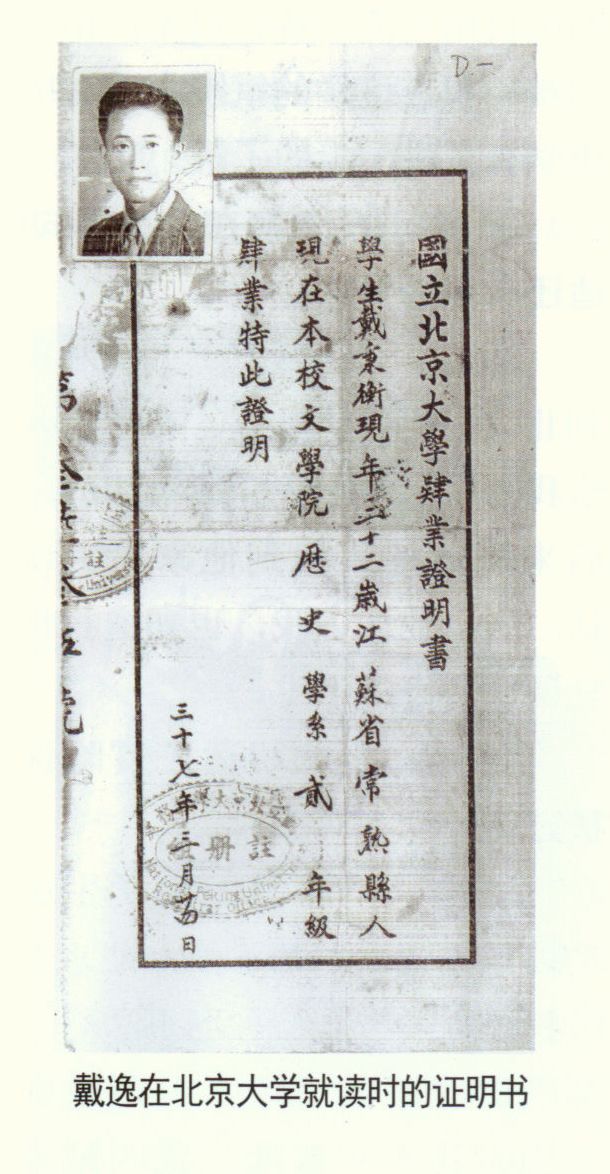 D.-
國立北京大學肄業證明書
學生戴秉衡現年二十二歲江蘇省常熟縣人
現在本校文學院歷史學系貳年級
肄業特此證明
三十七年三月廿四日
註册
National Peking University
第
伍號
戴逸在北京大学就读时的证明书